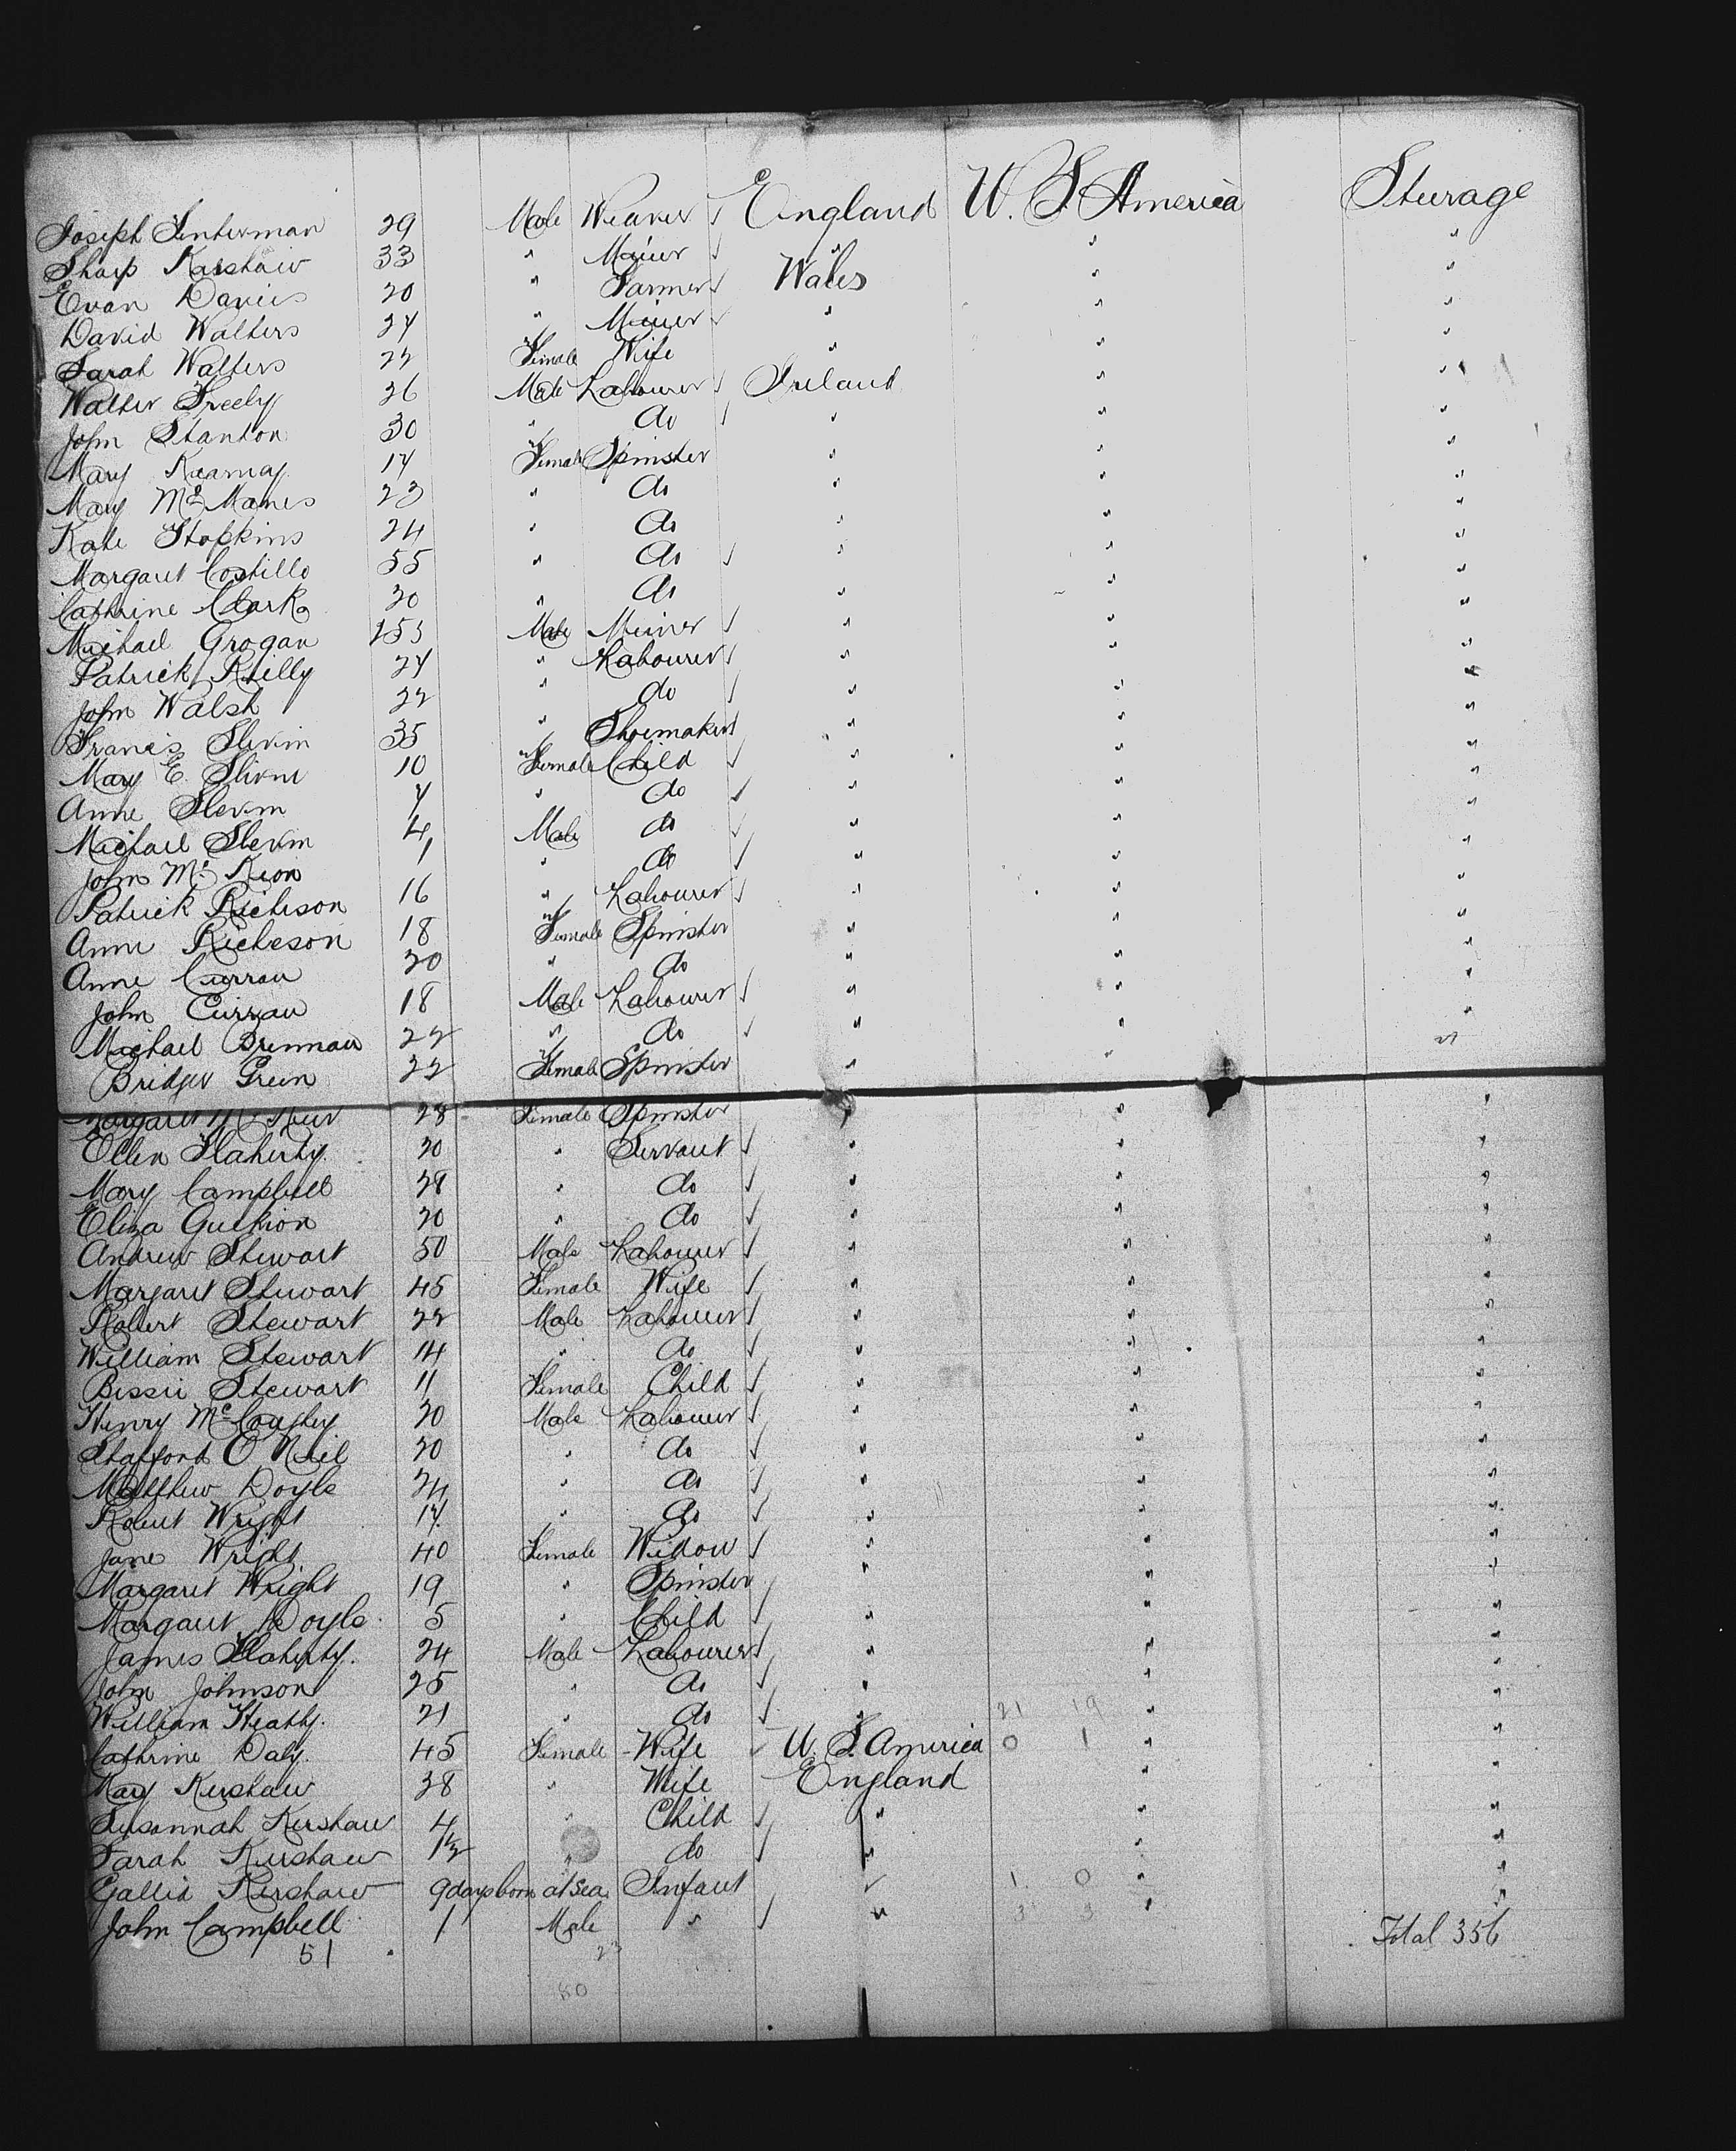 Joseph Senterman 29 Male Weaver England W. S. America Sturage
Sharp Karshaw 33 " Mainer " " "
Evan Davies 20 " Farmer Wales " "
David Walters 24 " Miner " " "
Sarah Walters 22 Female Wife " " "
Walter Freely 26 Male Labourer Ireland " "
John Stanton 30 " do " " "
Mary Kearnay 17 Female Spinster " " "
Mary Mc Manes 23 " do " " "
Kate Hopkins 24 " do " " "
Margaret Costillo 55 " do " " "
Cathrine Clark 20 " do " " "
Michael Grogan Male Miner " " "
Patrick Reilly 24 " Labourer " " "
John Walsh 22 " do " " "
Francis Slevin 35 " Shoemaker " " "
Mary E. Slevin 10 Female Child " " "
Anne Slevin 7 " do " " "
Michael Slevin 4 Male do " " "
John Mc Keon 1 " do " " "
Patrick Richeson 16 " Labourer " " "
Anne Richeson 18 Female Spinster " " "
Anne Curran 20 " do " " "
John Curran 18 Male Labourer " " "
Michael Brennan 22 " do " " "
Bridget Green 22 Female Spinster " " "
Margaret Mc 28 Female Spinster " " "
Ellen Flaherty 20 " Servant " " "
Mary Campbell 28 " do " " "
Eliza Guckion 20 " do " " "
Andrew Stewart 50 Male Labourer " " "
Margaret Stewart 45 Female Wife " " "
Robert Stewart 22 Male Labourer " " "
William Stewart 14 " do " " "
Bessie Stewart 11 Female Child " " "
Henry Mc Coughy 20 Male Labourer " " "
Stafford O Neil 20 " do " " "
Matthew Doyle 24 " do " " "
Robert Wright 17 " do " " "
Jane Wright 40 Female Widow " " "
Margaret Wright 19 " Spinster " " "
Margaret Doyle 5 " Child " " "
James Flaherty 24 Male Labourer " " "
John Johnson 25 " do " " "
William Heathy 21 " do " 21 19 " "
Cathrine Daly 45 Female Wife U. S. America 0 1 " "
Mary Kershaw 38 " Wife England " "
Susannah Kershaw 4 " Child " " "
Sarah Kershaw 1½ " do " " "
Gallia Kershaw 9 days born at Sea Infant " 1 0 " "
John Campbell 1 Male " " 3 3 " "
51 23 Total 356
80